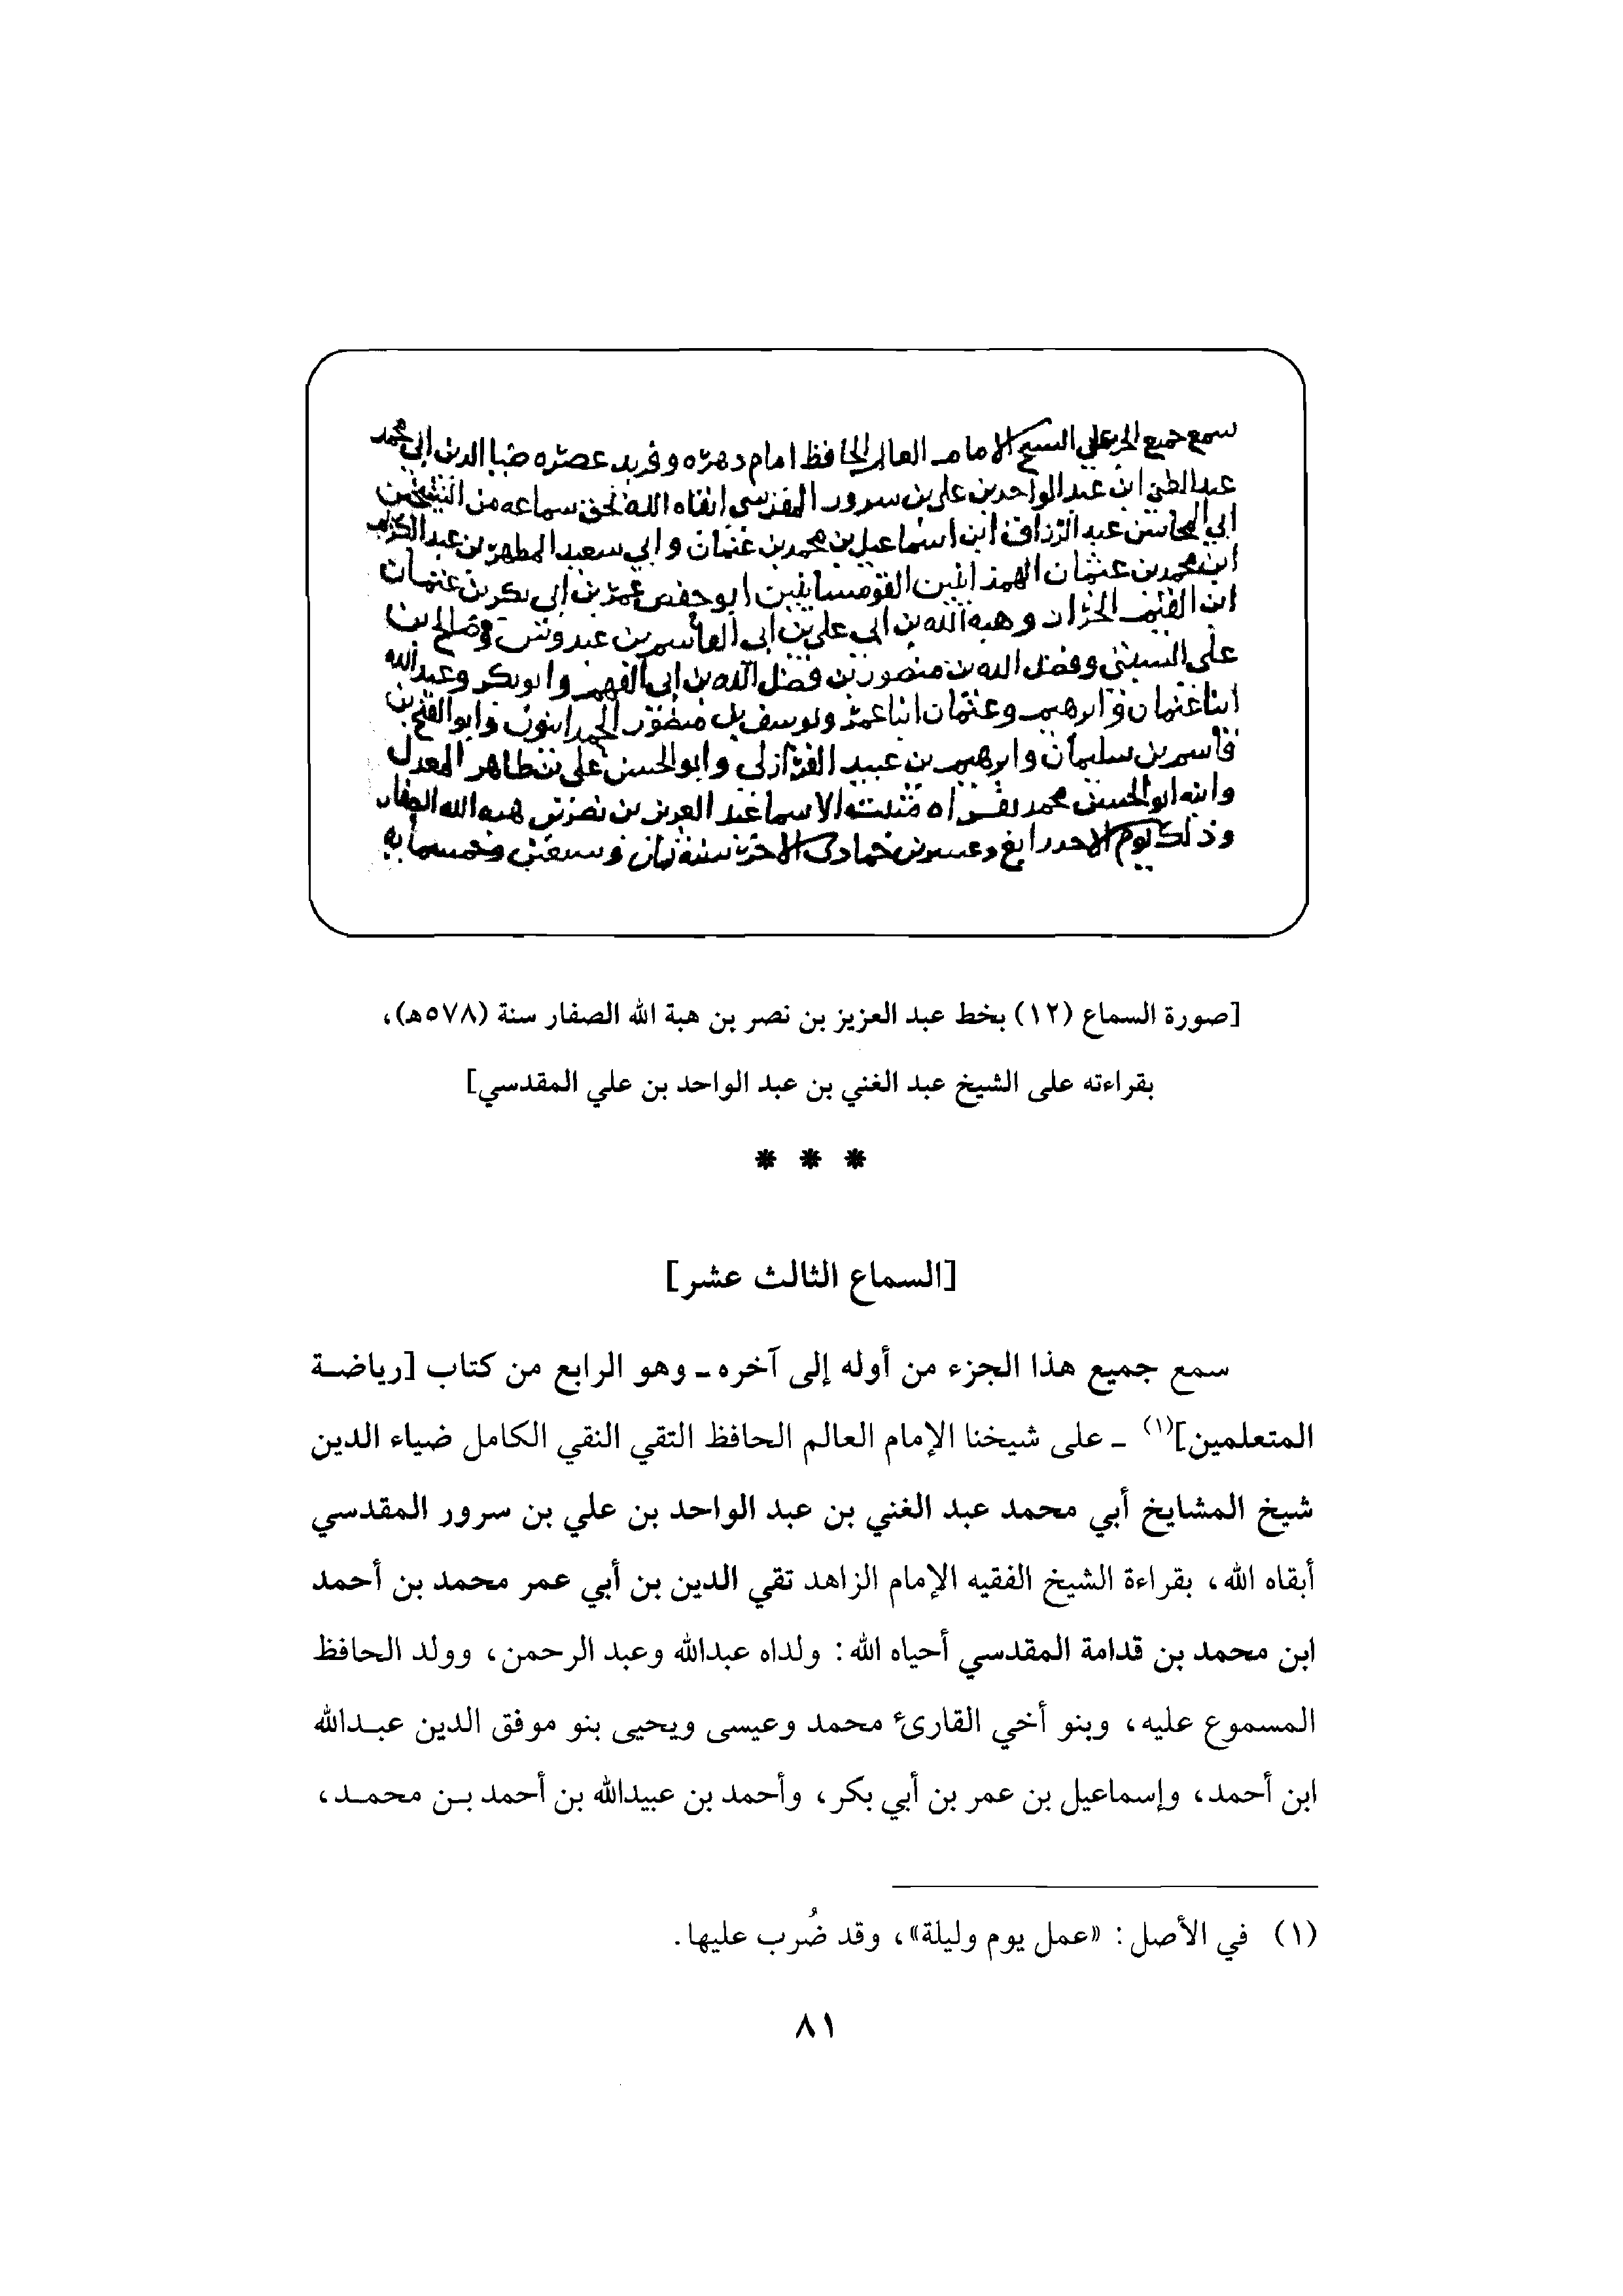 سمع جميع الجزء على الشيخ الامام العالم الحافظ امام دهره وفريد عصره ضيا الدين ابي محمد
عبد الغني ابن عبد الواحد بن علي بن سرور المقدسي ابقاه الله بحق سماعه من الشيخين
ابي المحاسن عبد الرزاق ابن اسماعيل بن محمد بن عثمان وابي سعيد المطهر بن عبد الكريم
ابن محمد بن عثمان الهمذانيين القومسانيين ابو حفص عمر بن ابي بكر بن عثمان
ابن وهبة الله بن ابي علي بن ابي القاسم بن عبدوس وصالح بن
علي وفضل الله بن منصور بن فضل الله بن ابي الفهم وابو بكر وعبد الله
ابنا عثمان وابرهيم وعثمان ابنا عمر ويوسف بن منصور وابو الفتح بن
قاسم بن سليمان وابرهيم بن عبيد وابو الحسن علي بن طاهر المعدل
وابنه ابو الحسين محمد بقراه مثبت الاسما عبد العزيز بن نصر بن هبه الله الصفار
وذلك يوم الاحد رابع وعشرين جمادى الاخرة سنة ثمان وسبعين وخمسمايه
[صورة السماع (١٢) بخط عبد العزيز بن نصر بن هبة الله الصفار سنة (٥٧٨هـ)،
بقراءته على الشيخ عبد الغني بن عبد الواحد بن علي المقدسي]
* * *
[السماع الثالث عشر]
سمع جميع هذا الجزء من أوله إلى آخره ـ وهو الرابع من كتاب [رياضة
المتعلمين](١) ـ على شيخنا الإمام العالم الحافظ التقي النقي الكامل ضياء الدين
شيخ المشايخ أبي محمد عبد الغني بن عبد الواحد بن علي بن سرور المقدسي
أبقاه الله، بقراءة الشيخ الفقيه الإمام الزاهد تقي الدين بن أبي عمر محمد بن أحمد
ابن محمد بن قدامة المقدسي أحياه الله: ولداه عبدالله وعبد الرحمن، وولد الحافظ
المسموع عليه، وبنو أخي القارئ محمد وعيسى ويحيى بنو موفق الدين عبدالله
ابن أحمد، وإسماعيل بن عمر بن أبي بكر، وأحمد بن عبيدالله بن أحمد بن محمد،
(١) في الأصل: «عمل يوم وليلة»، وقد ضُرب عليها.
٨١